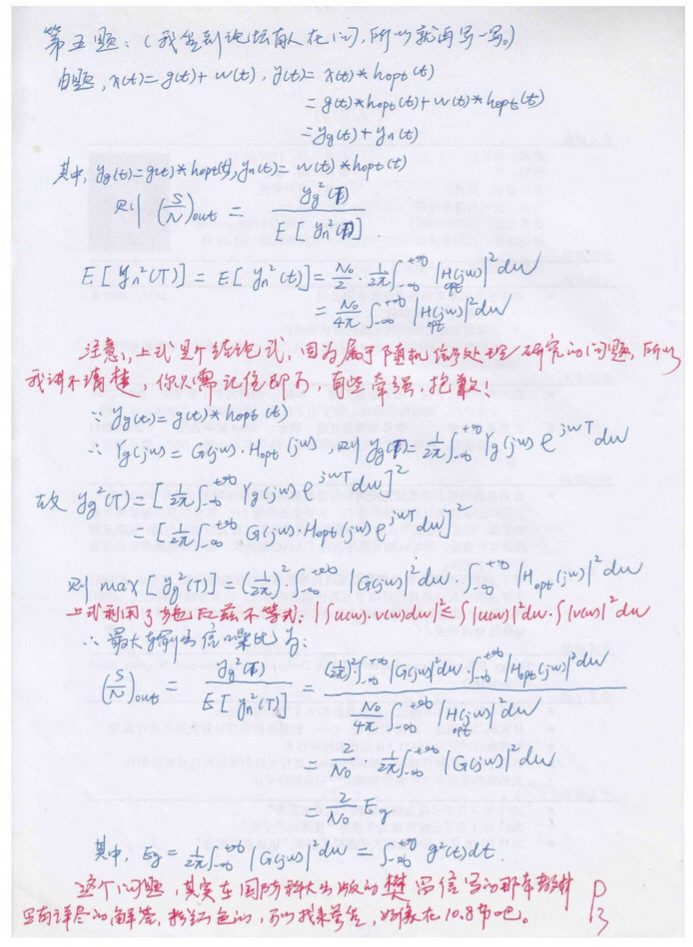 第五题：（我看到论坛有人在问，所以就再写一写。）
由题，x(t)=g(t)+w(t)，y(t)=x(t)*hopt(t)
=g(t)*hopt(t)+w(t)*hopt(t)
=yg(t)+yn(t)
其中，yg(t)=g(t)*hopt(t)，yn(t)=w(t)*hopt(t)
则 (S/N)out = yg²(T) / E[yn²(T)]
E[yn²(T)] = E[yn²(t)] = N₀/2 · 1/2π ∫_{-∞}^{+∞} |Hopt(jw)|² dw
= N₀/4π ∫_{-∞}^{+∞} |Hopt(jw)|² dw
注意，上式是个结论式，因为属于随机信号处理研究的问题，所以
我讲不清楚，你只需记住即可，有些牵强，抱歉！
∵ yg(t)=g(t)*hopt(t)
∴ Yg(jw)=G(jw)·Hopt(jw)，则 yg(T)= 1/2π ∫_{-∞}^{+∞} Yg(jw) e^{jwT} dw
故 yg²(T) = [1/2π ∫_{-∞}^{+∞} Yg(jw) e^{jwT} dw]²
= [1/2π ∫_{-∞}^{+∞} G(jw)·Hopt(jw) e^{jwT} dw]²
则 max[yg²(T)] = (1/2π)² ∫_{-∞}^{+∞} |G(jw)|² dw · ∫_{-∞}^{+∞} |Hopt(jw)|² dw
上式利用了施瓦兹不等式：|∫u(w)·v(w)dw|² ≤ ∫|u(w)|²dw · ∫|v(w)|²dw
∴ 最大输出信噪比为：
(S/N)out = yg²(T) / E[yn²(T)] = (1/2π)² ∫_{-∞}^{+∞} |G(jw)|² dw · ∫_{-∞}^{+∞} |Hopt(jw)|² dw / N₀/4π ∫_{-∞}^{+∞} |Hopt(jw)|² dw
= 2/N₀ · 1/2π ∫_{-∞}^{+∞} |G(jw)|² dw
= 2/N₀ Eg
其中，Eg = 1/2π ∫_{-∞}^{+∞} |G(jw)|² dw = ∫_{-∞}^{+∞} g²(t)dt.
这个问题，其实在国防科大出版的樊昌信写的那本教材
里有详尽的解答，粉红色的，可以找来看看，好像在10.8节吧。
P3